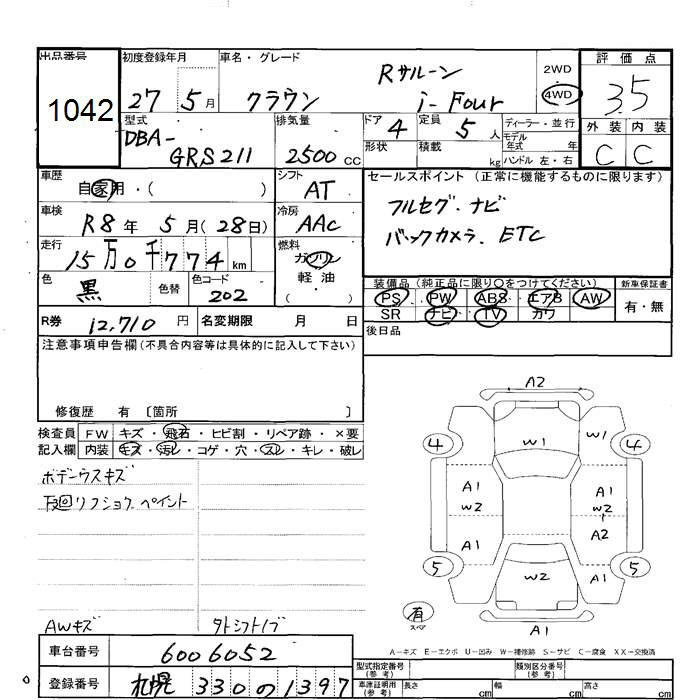 出品番号 初度登録年月 車名・グレード 評価点
1042 27 5月 クラウン Rサルーン i-Four 2WD 4WD 3.5
型式 排気量 ドア 4 定員 5人 ディーラー・並行 外装 内装
DBA-GRS211 2500cc 形状 積載 kg モデル年式 年 C C
ハンドル 左・右
車歴 自家用・( ) シフト AT セールスポイント (正常に機能するものに限ります)
車検 R8年 5月(28日) 冷房 AAC フルセグ.ナビ
走行 15万0千774km 燃料 ガソリン 軽・油 ( ) バックカメラ. ETC
色 黒 色替 色コード 202 装備品 (純正品に限り○をつけてください) 新車保証書
PS PW ABS エアB AW 有・無
R券 12,710円 名変期限 月 日 SR ナビ TV カワ
注意事項申告欄(不具合内容等は具体的に記入して下さい) 後日品
修復歴 有 〔箇所 〕
検査員 FW キズ・飛石・ヒビ割・リペア跡・×要
記入欄 内装 キズ・汚レ・コゲ・穴・スレ・キレ・破レ
ボデーウスキズ
下廻リフショク.ペイント
AWキズ
A2
4 W1 W1 4
A1 W2 A1 W2
A1 A2
5 W2 A1 5
有 スペア A1
A-キズ E-エクボ U-凹み W-補修跡 S-サビ C-腐食 XX-交換済
車台番号 6006052
登録番号 札幌 330の1397
型式指定番号(参考) 類別区分番号(参考)
車庫証明用(参考) 長さ cm 幅 cm 高さ cm